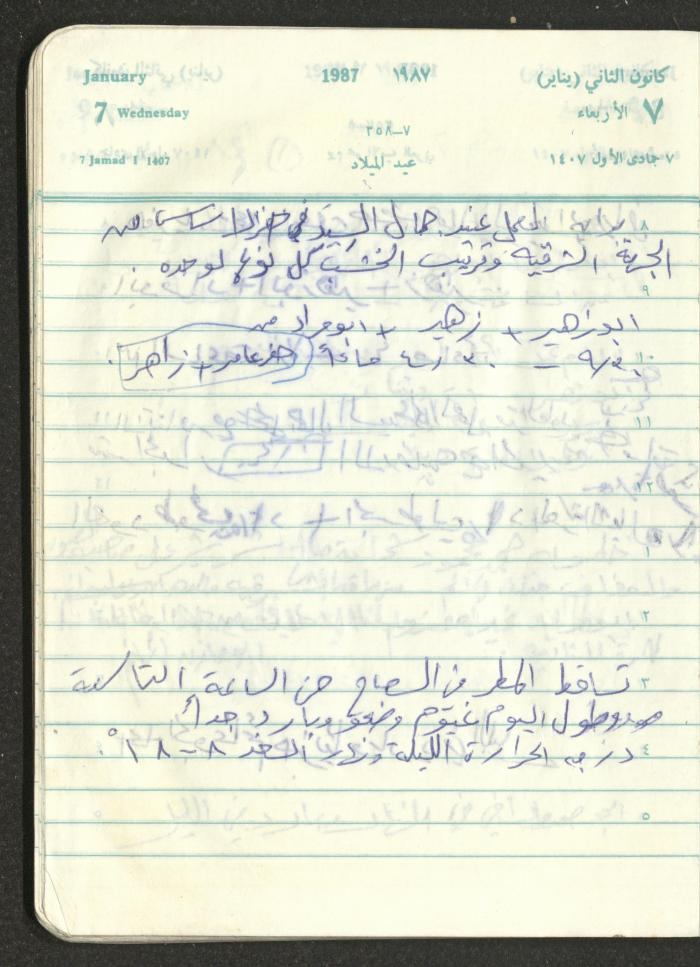 January 1987 ١٩٨٧ كانون الثاني (يناير)
7 Wednesday ٧ الأربعاء
٧–٣٥٨
7 Jamad I 1407 عيد الميلاد ٧ جمادى الأول ١٤٠٧
٨ بداية العمل عند جمال السيد في حفر الاساسات من
الجهة الشرقية وترتيب الخشب كل نوع لوحده
٩
ابو زاهير + زهير + ابو مراد من
١٠ حفر عامر + زاهر
١١
١٢
١
٢
٣ تساقط المطر في الصباح من الساعة التاسعة
وطول اليوم غيوم وبارد جداً
٤ درجة الحرارة الليلة ونهار الغد ٨ – ١٨°
٥